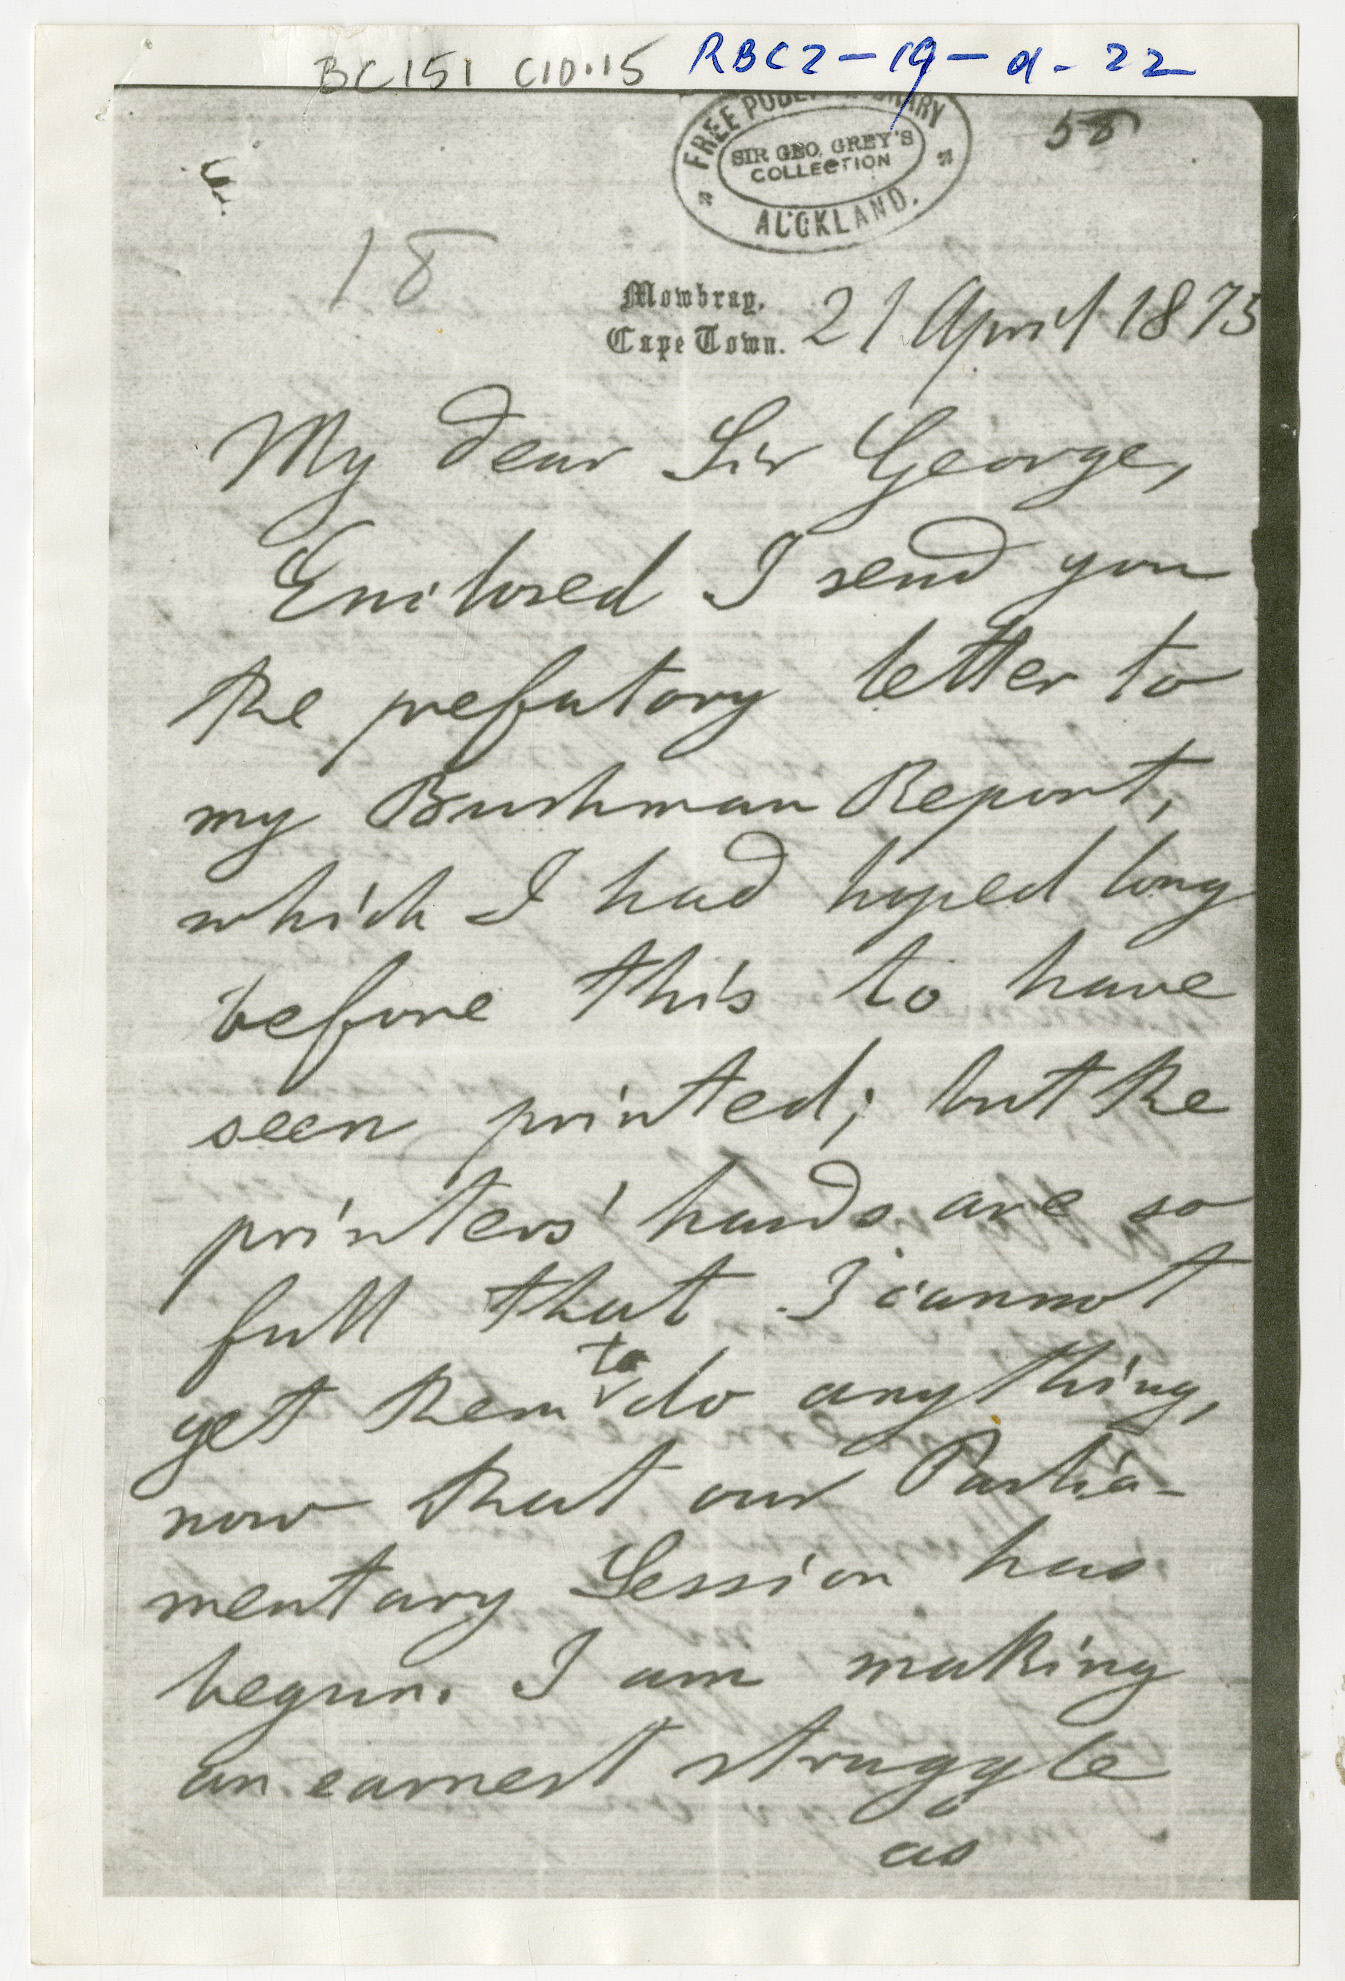 BC151 C10.15 RBC2-19-d-22
FREE PUBLIC LIBRARY
SIR GEO. GREY'S
COLLECTION
AUCKLAND.
58
18
Mowbray,
Cape Town. 21 April 1875
My dear Sir George,
Enclosed I send you
the prefatory letter to
my Bushman Report,
which I had hoped long
before this to have
seen printed; but the
printers' hands are so
full that I cannot
get them to do anything,
now that our Parlia-
mentary Session has
begun. I am making
an earnest struggle
as